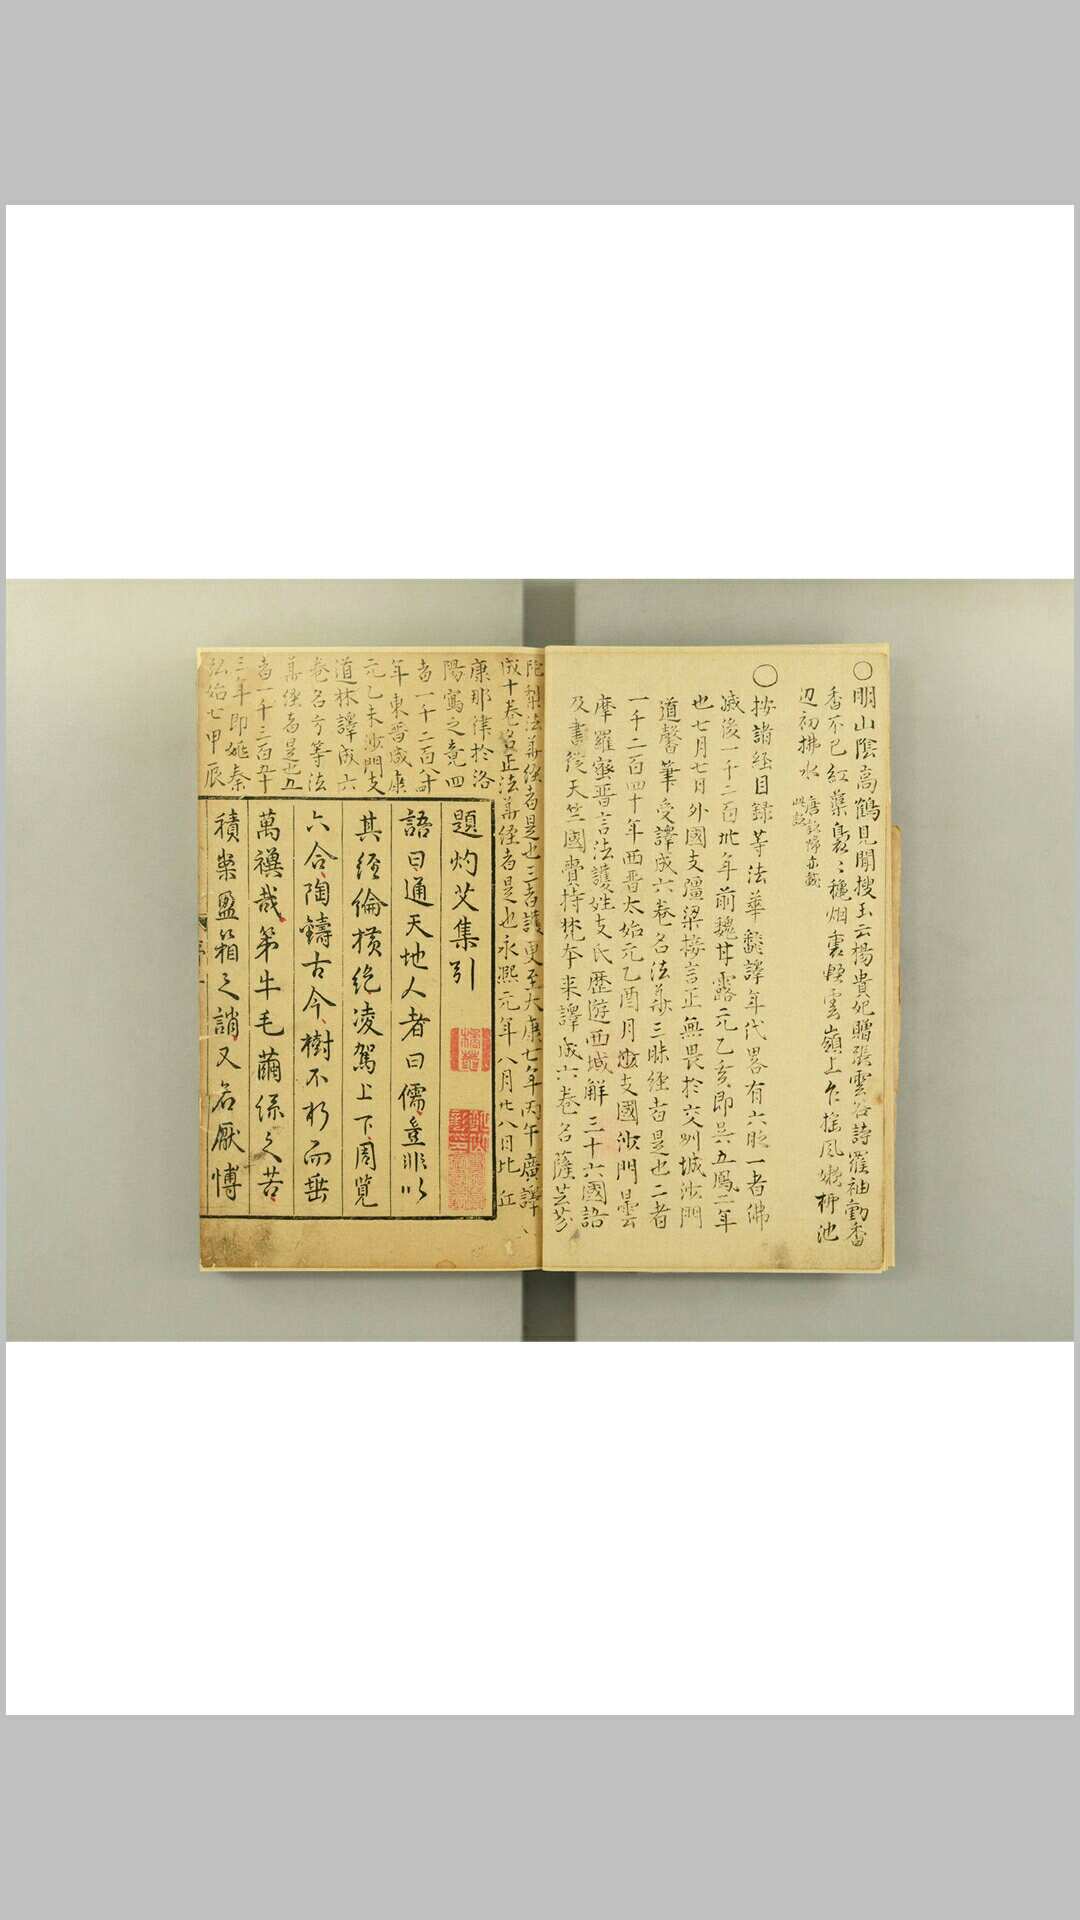 ○明山陰高鶴見聞搜玉云楊貴妃贈張雲谷詩羅袖動香
香不已紅蕖裊〻穐烟裏輕雲嶺上乍搖風嫩柳池
辺初拂水
○按諸経目録等法華翻譯年代畧有六昉一者佛
滅後一千二百卅年前魏甘露元乙亥即吴五鳳二年
也七月七日外國支彊梁接言正無畏於交州城沙門
道馨筆受譯成六巻名法華三昧経者是也二者
一千二百四十年西晋太始元乙酉月支國沙門曇
摩羅蜜晋言法護姓支氏歴遊西域解三十六國語
及書従天竺國賷持梵本来譯成六巻名薩芸芬
陀梨法華経者是也三者護更至大康七年丙午廣譯
成十巻名正法華経者是也永熙元年八月廿八日比丘
康那律於洛
陽寫之竟四
者一千二百八
年東晋咸康
元乙未沙門支
道林譯成六
巻名方等法
華経者是也五
者一千三百五十
三年即姚秦
弘始七甲辰
題灼艾集引
語曰通天地人者曰儒豈非以
其経倫横絶凌駕上下周覧
六合陶鑄古今樹不朽而垂
萬禩哉第牛毛繭絲之苦
積案盈箱之誚又名厭博